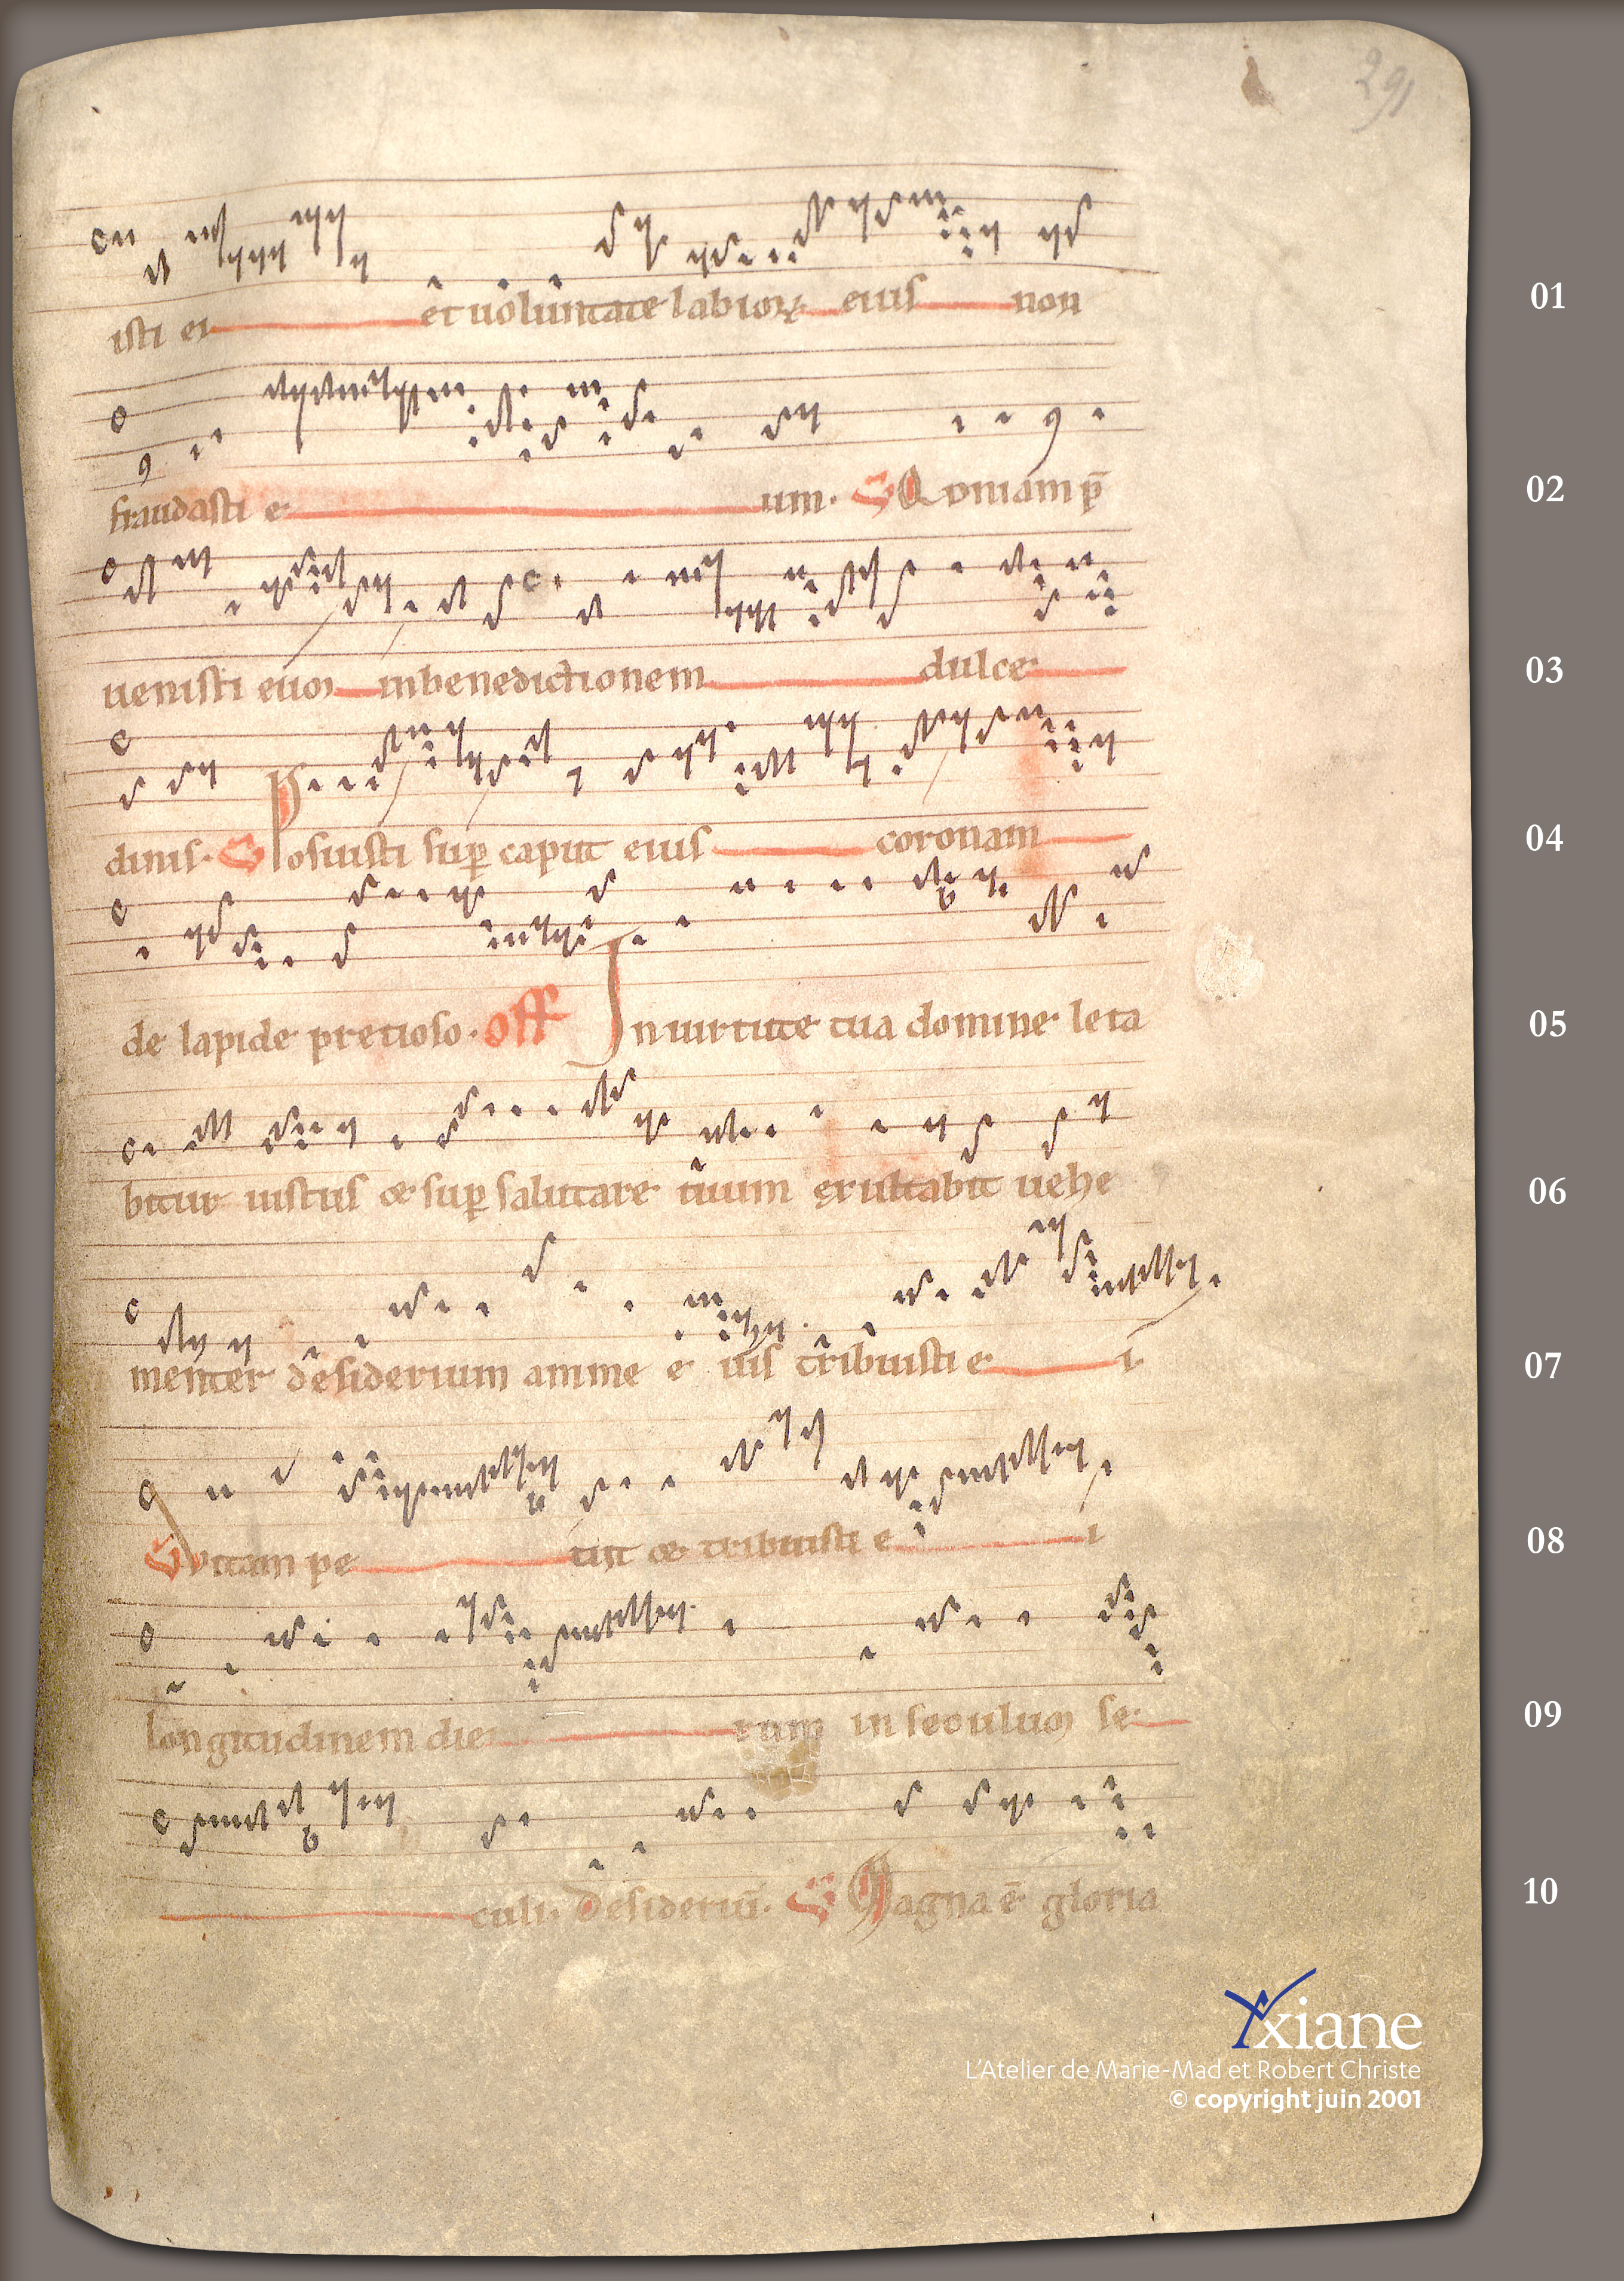 291
isti ei et uoluntate labioꝝ eius non
01
fraudasti e um. Quoniam p̄
02
uenisti euꝫ inbenedictionem dulce
03
dinis. Posuisti suꝑ caput eius coronam
04
de lapide pretioso. off In uirtute tua domine leta
05
bitur iustus & suꝑ salutare tuum exultabit uehe
06
menter desiderium anime e ius tribuisti e i
07
Vitam pe tiit & tribuisti e i
08
longitudinem die rum in seculuꝫ se
09
culi. Desideriū. Magna ē gloria
10
Axiane
L'Atelier de Marie-Mad et Robert Christe
© copyright juin 2001